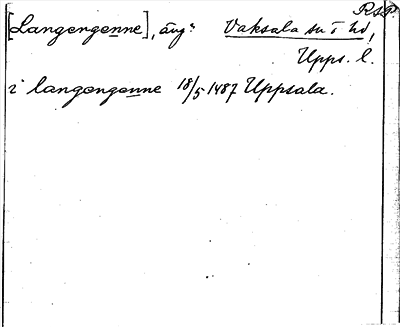 RSP.
[Langengenne], äng: Vaksala sn o hd,
Upps. l.
i langengenne 18/5 1487 Uppsala.